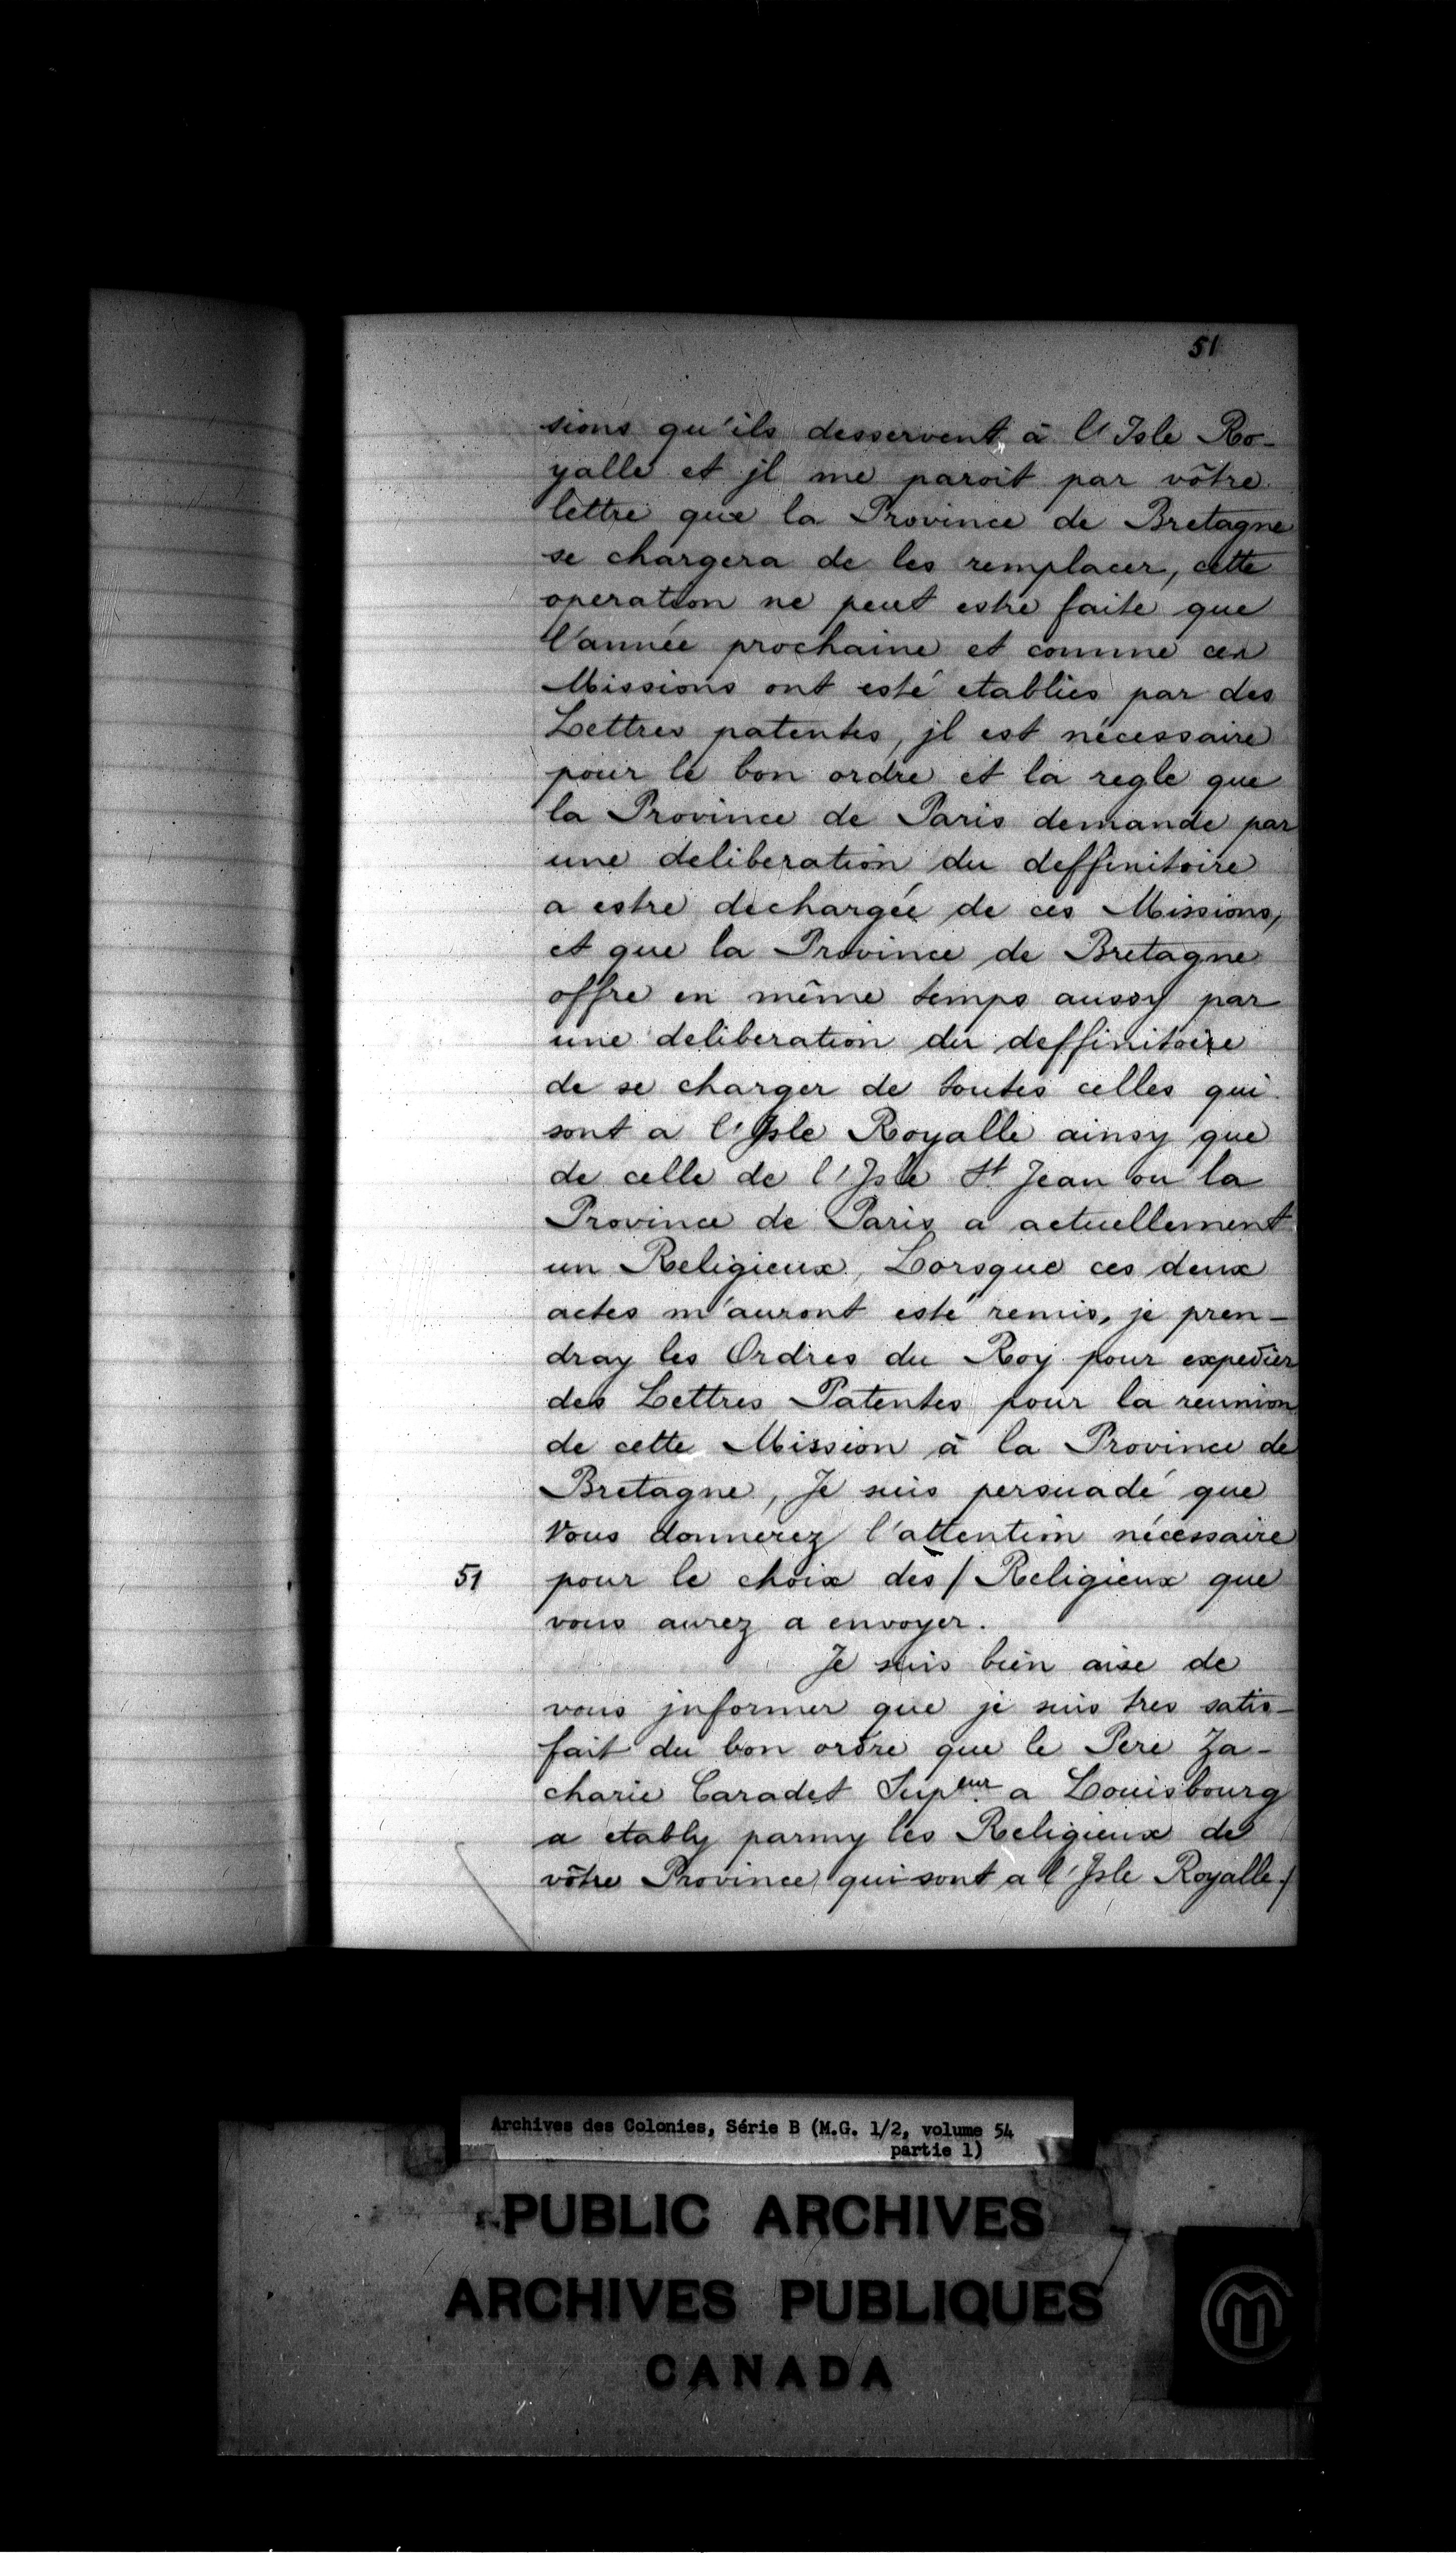 51
sions qu'ils desservent à l'Isle Ro-
yalle et jl me paroit par vôtre
lettre que la Province de Bretagne
se chargera de les remplacer, cette
operation ne peut estre faite que
l'année prochaine et comme ces
Missions ont esté etablies par des
Lettres patentes, jl est nécessaire
pour le bon ordre et la regle que
la Province de Paris demande par
une deliberation du deffinitoire
a estre dechargée de ces Missions,
et que la Province de Bretagne
offre en même temps aussy par
une deliberation du deffinitoire
de se charger de toutes celles qui
sont a l'Isle Royalle ainsy que
de celle de l'Isle St Jean ou la
Province de Paris a actuellement
un Religieux, Lorsque ces deux
actes m'auront esté remis, je pren-
dray les Ordres du Roy pour expedier
des Lettres Patentes pour la reunion
de cette Mission à la Province de
Bretagne, Je suis persuadé que
Vous donnerez l'attention nécessaire
51 pour le choix des / Religieux que
vous aurez a envoyer.
Je suis bien aise de
vous jnformer que je suis tres satis-
fait du bon ordre que le Pere Za-
charie Caradet Supeur a Louisbourg
a etably parmy les Religieux de
vôtre Province qui sont a l'Isle Royalle./
Archives des Colonies, Série B (M.G. 1/2, volume 54
partie 1)
PUBLIC ARCHIVES
ARCHIVES PUBLIQUES
CANADA